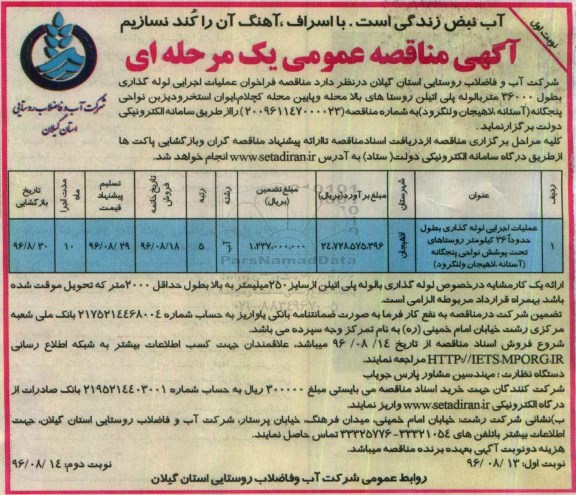 نوبت اول
آب نبض زندگی است. با اسراف، آهنگ آن را کُند نسازیم
آگهی مناقصه عمومی یک مرحله ای
شرکت آب و فاضلاب روستایی
استان گیلان
شرکت آب و فاضلاب روستایی استان گیلان درنظر دارد مناقصه فراخوان عملیات اجرایی لوله گذاری
بطول ۳۶۰۰۰ متر بالوله پلی اتیلن روستا های بالا محله وپایین محله کچلام،ایوان استخرودیزبن نواحی
پنجگانه (آستانه،لاهیجان ولنگرود) به شماره مناقصه (۲۰۰۹۶۱۱۴۷۰۰۰۰۲۳) را از طریق سامانه الکترونیکی
دولت برگزار نماید.
کلیه مراحل برگزاری مناقصه از دریافت اسناد مناقصه تا ارائه پیشنهاد مناقصه گران و بازگشایی پاکت ها
از طریق درگاه سامانه الکترونیکی دولت( ستاد) به آدرس www.setadiran.ir انجام خواهد شد.
ردیف | عنوان | شهرستان | مبلغ برآورد(ریال) | مبلغ تضمین (ریال) | رشته | رتبه | تاریخ خاتمه فروش | تسلیم پیشنهاد قیمت | مدت اجرا ماه | تاریخ بازگشایی
۱ | عملیات اجرایی لوله گذاری بطول حدوداً ۳۶ کیلومتر روستاهای تحت پوشش نواحی پنجگانه (آستانه،لاهیجان ولنگرود) | لاهیجان | ۲۴.۷۲۸.۵۷۵.۳۹۶ | ۱.۲۳۷.۰۰۰.۰۰۰ | آب | ۵ | ۹۶/۰۸/۱۸ | ۹۶/۰۸/۲۹ | ۱۰ | ۹۶/۸/۳۰
ارائه یک کار مشابه درخصوص لوله گذاری بالوله پلی اتیلن از سایز ۲۵۰میلیمتر به بالا بطول حداقل ۲۰۰۰متر که تحویل موقت شده
باشد بهمراه قرارداد مربوطه الزامی است.
تضمین شرکت درمناقصه به نفع کار فرما به صورت ضمانتنامه بانکی یا واریز به حساب شماره ۲۱۷۵۲۱۴۴۶۸۰۰۴ بانک ملی شعبه
مرکزی رشت خیابان امام خمینی (ره) به نام تمرکز وجه سپرده می باشد.
شروع فروش اسناد مناقصه از تاریخ ۱۴/ ۰۸/ ۹۶ میباشد، علاقمندان جهت کسب اطلاعات بیشتر به شبکه اطلاع رسانی
HTTP://IETS.MPORG.IR مراجعه نمایند.
دستگاه نظارت : مهندسین مشاور پارس جویاب
شرکت کنندگان جهت خرید اسناد مناقصه می بایستی مبلغ ۳۰۰۰۰۰ ریال به حساب شماره ۲۱۹۵۲۱۴۴۰۳۰۰۱ بانک صادرات از
درگاه الکترونیکی www.setadiran.ir واریز نمایند.
ب)نشانی شرکت: رشت: خیابان امام خمینی، میدان فرهنگ، خیابان پرستار، شرکت آب و فاضلاب روستایی استان گیلان، جهت
اطلاعات بیشتر باتلفن های ۳۳۳۲۱۰۵۴- ۳۳۳۲۵۷۷۶ تماس حاصل نمایند.
هزینه دو نوبت آگهی بعهده برنده مناقصه میباشد.
نوبت اول: ۱۳ /۰۸ /۹۶
نوبت دوم: ۱۴ /۹۶/۰۸
روابط عمومی شرکت آب وفاضلاب روستایی استان گیلان
ParsNamadData